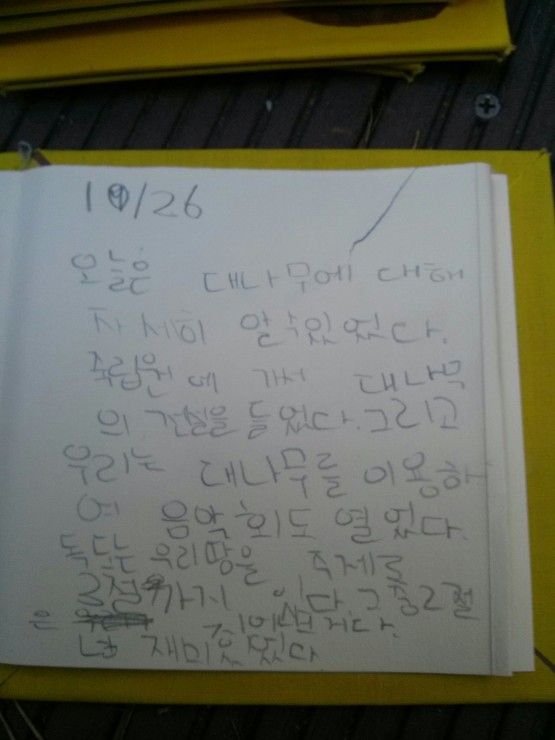 10/26
오늘은 대나무에 대해
자세히 알 수 있었다.
죽립원에 가서 대나무
의 전설을 들었다. 그리고
우리는 대나무를 이용하
여 음악회도 열었다.
독도는 우리땅을 주제로
2절까지 있다. 그 중 2절
은
넘 재미있었다